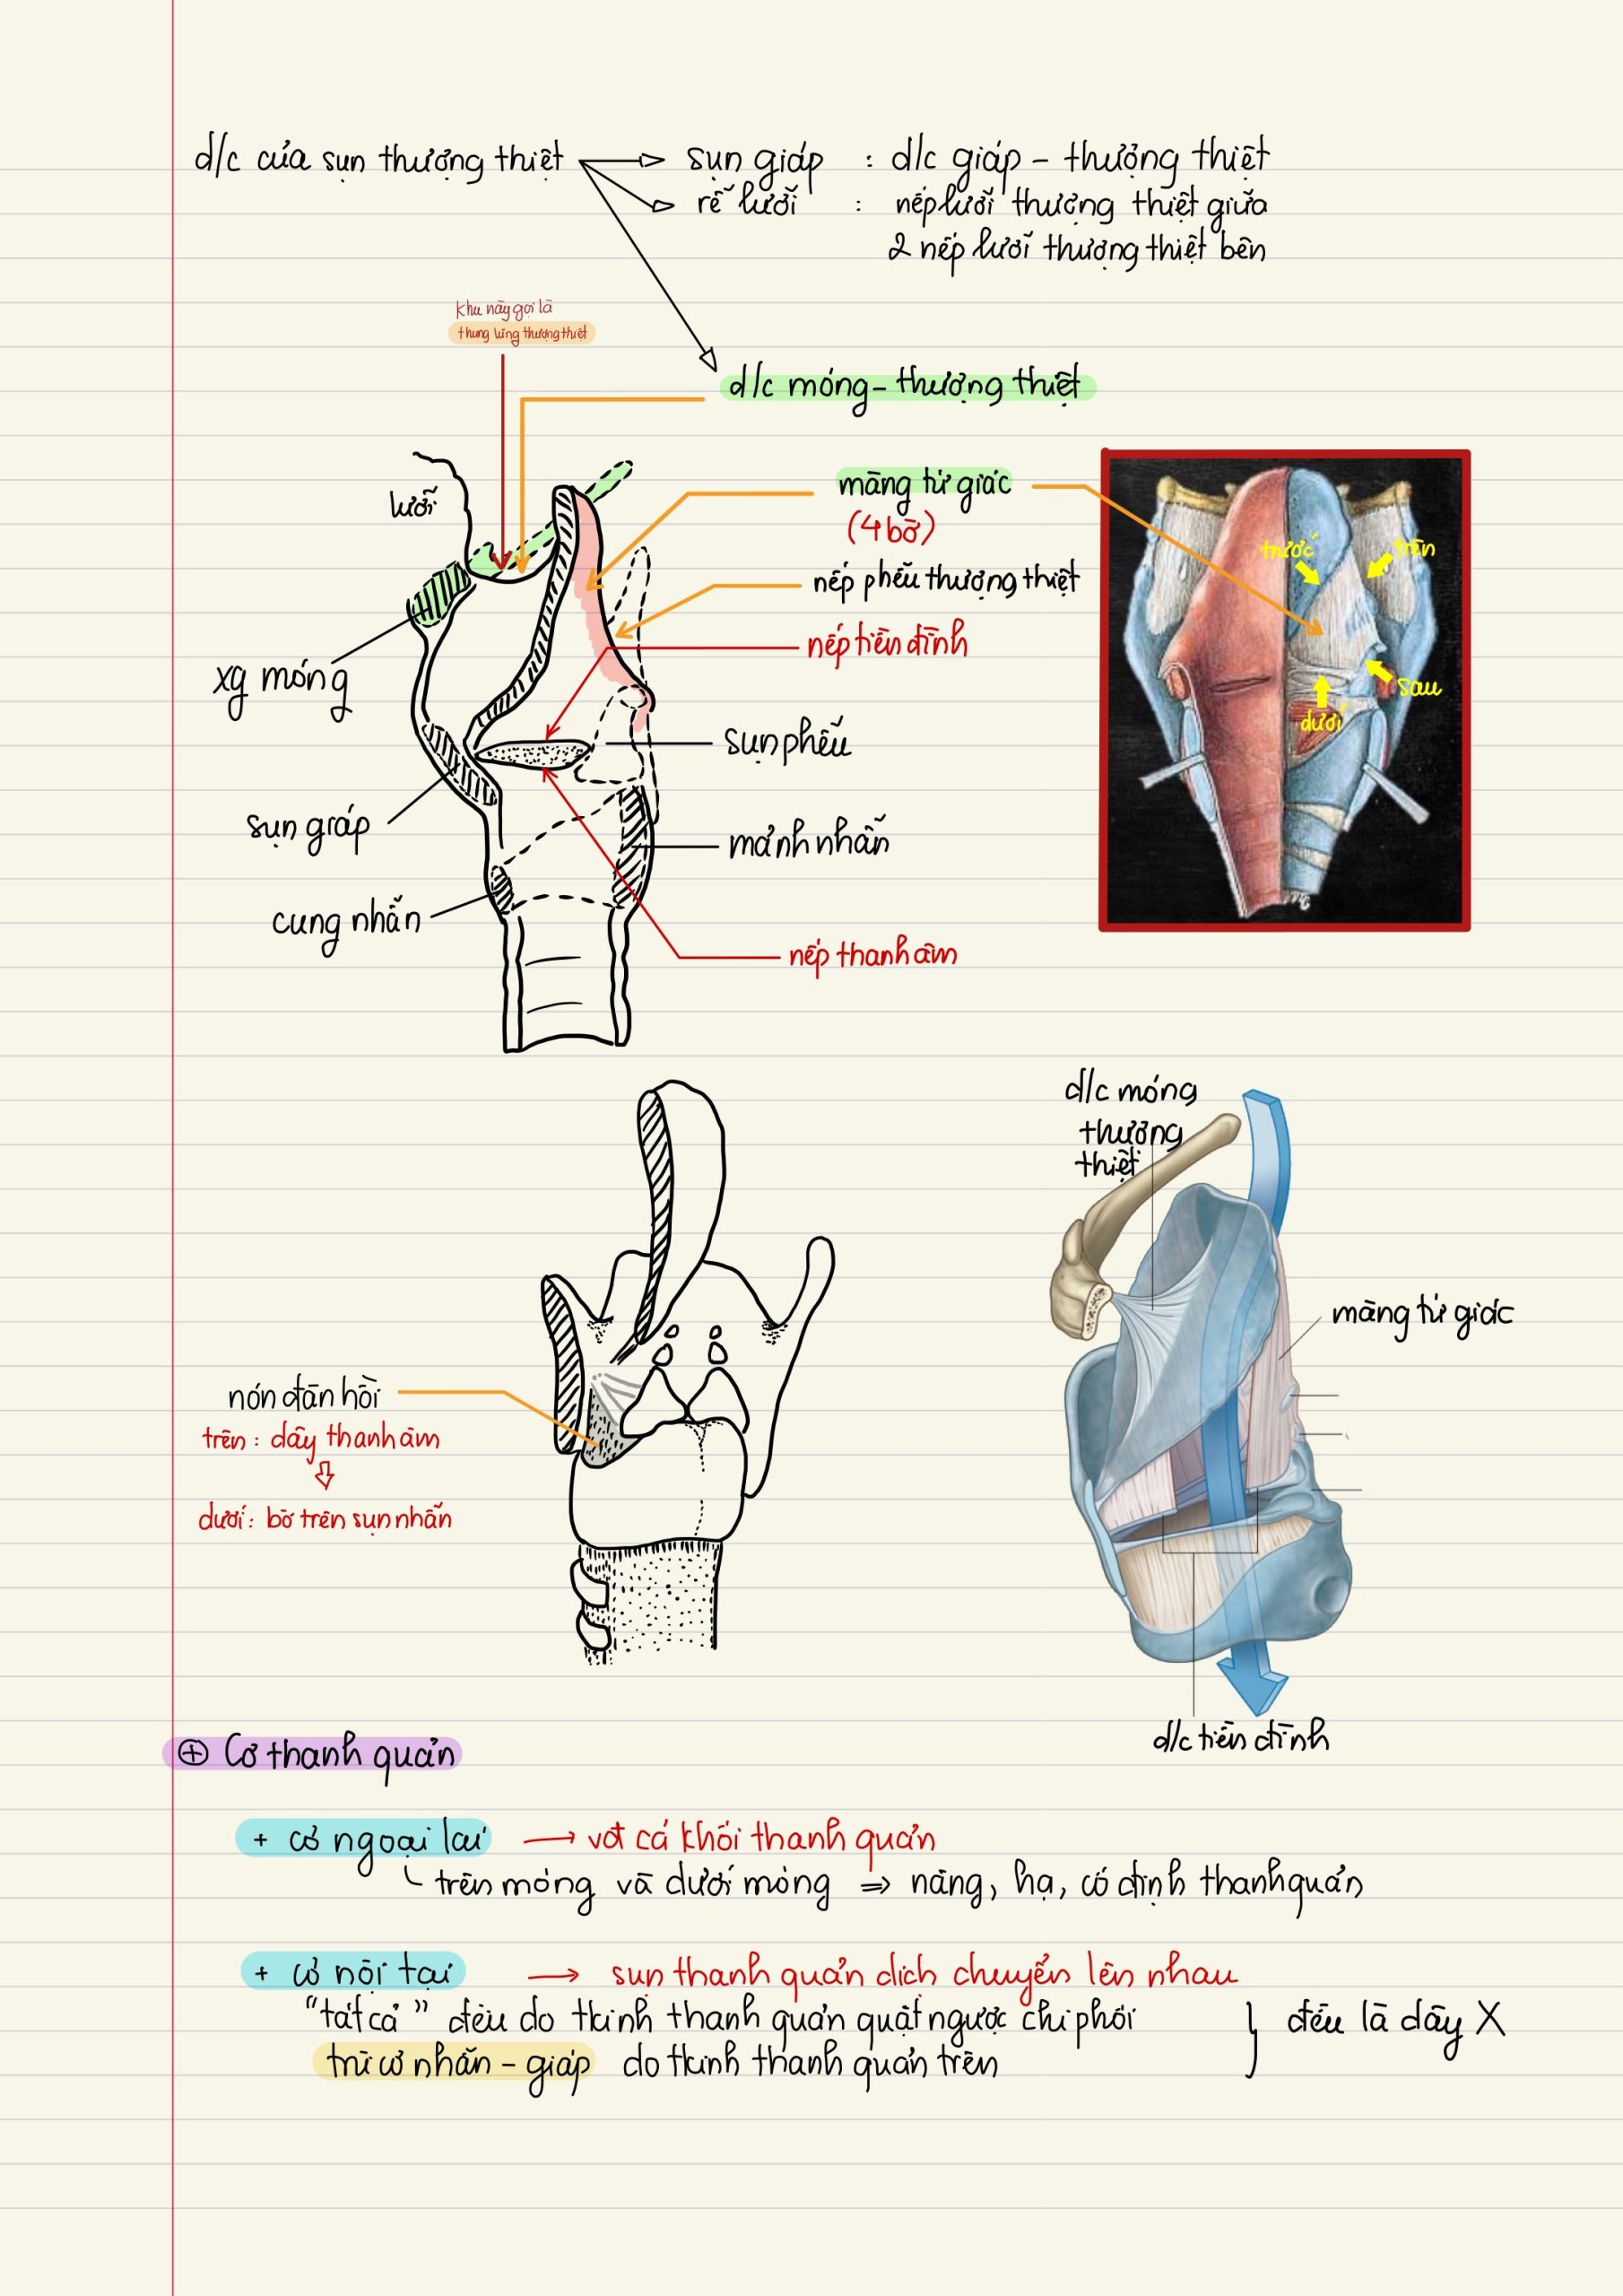 d/c của sụn thượng thiệt → sụn giáp : d/c giáp - thượng thiệt
rễ lưỡi : nếp lưỡi thượng thiệt giữa
2 nếp lưỡi thượng thiệt bên
khu này gọi là
thung lũng thượng thiệt
d/c móng - thượng thiệt
lưỡi
màng tứ giác
(4 bờ)
nếp phễu thượng thiệt
nếp tiền đình
trước
trên
sau
dưới
xg móng
sụn phễu
sụn giáp
mảnh nhẫn
cung nhẫn
nếp thanh âm
d/c móng
thượng
thiệt
màng tứ giác
nón đàn hồi
trên : dây thanh âm
dưới : bờ trên sụn nhẫn
d/c tiền đình
⊕ Cơ thanh quản
+ cơ ngoại lai → vđ cả khối thanh quản
trên móng và dưới móng ⇒ nâng, hạ, cố định thanh quản
+ cơ nội tại → sụn thanh quản dịch chuyển lên nhau
“tất cả” đều do tkinh thanh quản quặt ngược chi phối } đều là dây X
trừ cơ nhẫn - giáp do tkinh thanh quản trên